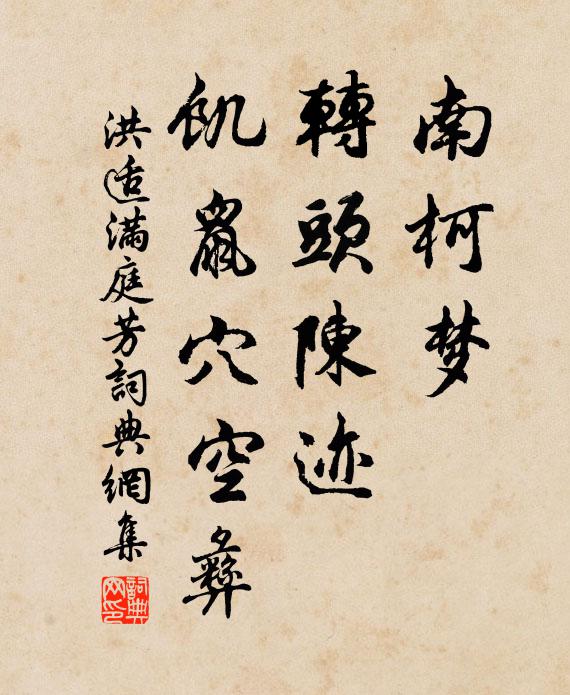 南柯梦
轉頭陳迹
飢鼠穴空彝
洪适滿庭芳詞典網集
詞典網印